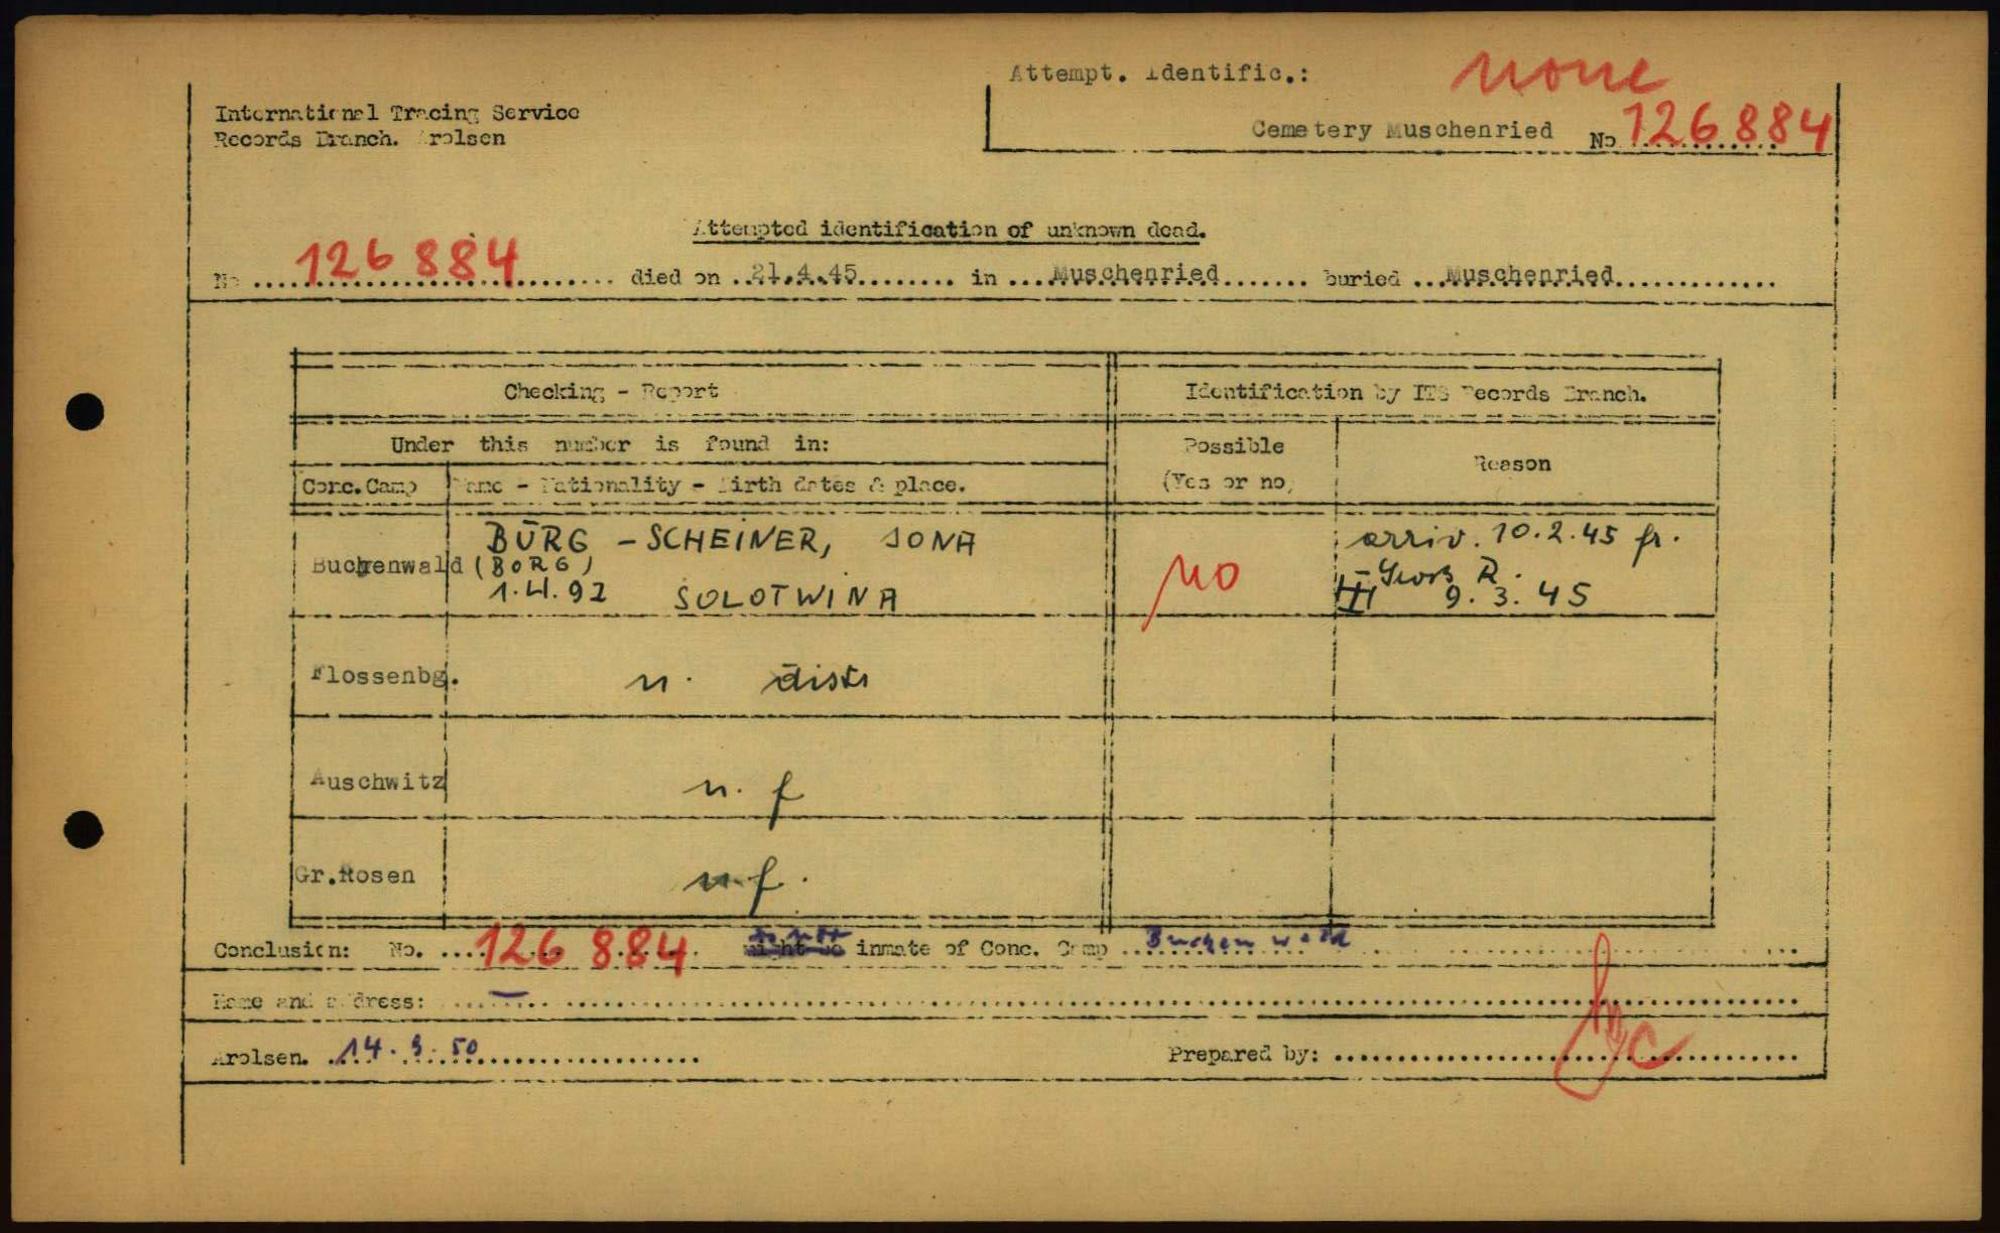 Attempt. Identific.: none
International Tracing Service
Records Branch. Arolsen
Cemetery Muschenried No 126884
Attempted identification of unknown dead.
No 126 884 died on 21.4.45 in Muschenried buried Muschenried
Checking - Report
Identification by ITS Records Branch.
Under this number is found in:
Possible
(Yes or no)
Reason
Conc.Camp Name - Nationality - Birth dates & place.
BÜRG - SCHEINER, JONA
Buchenwald (BORG)
SOLOTWINA
no
arriv. 10.2.45 fr.
Gross R.
III 9. 3. 45
Flossenbg. n.
Auschwitz n. f
Gr.Rosen n.f.
Conclusion: No. 126 884 inmate of Conc. Camp Buchenwald
Name and address: —
Arolsen. 14. 3. 50
Prepared by: